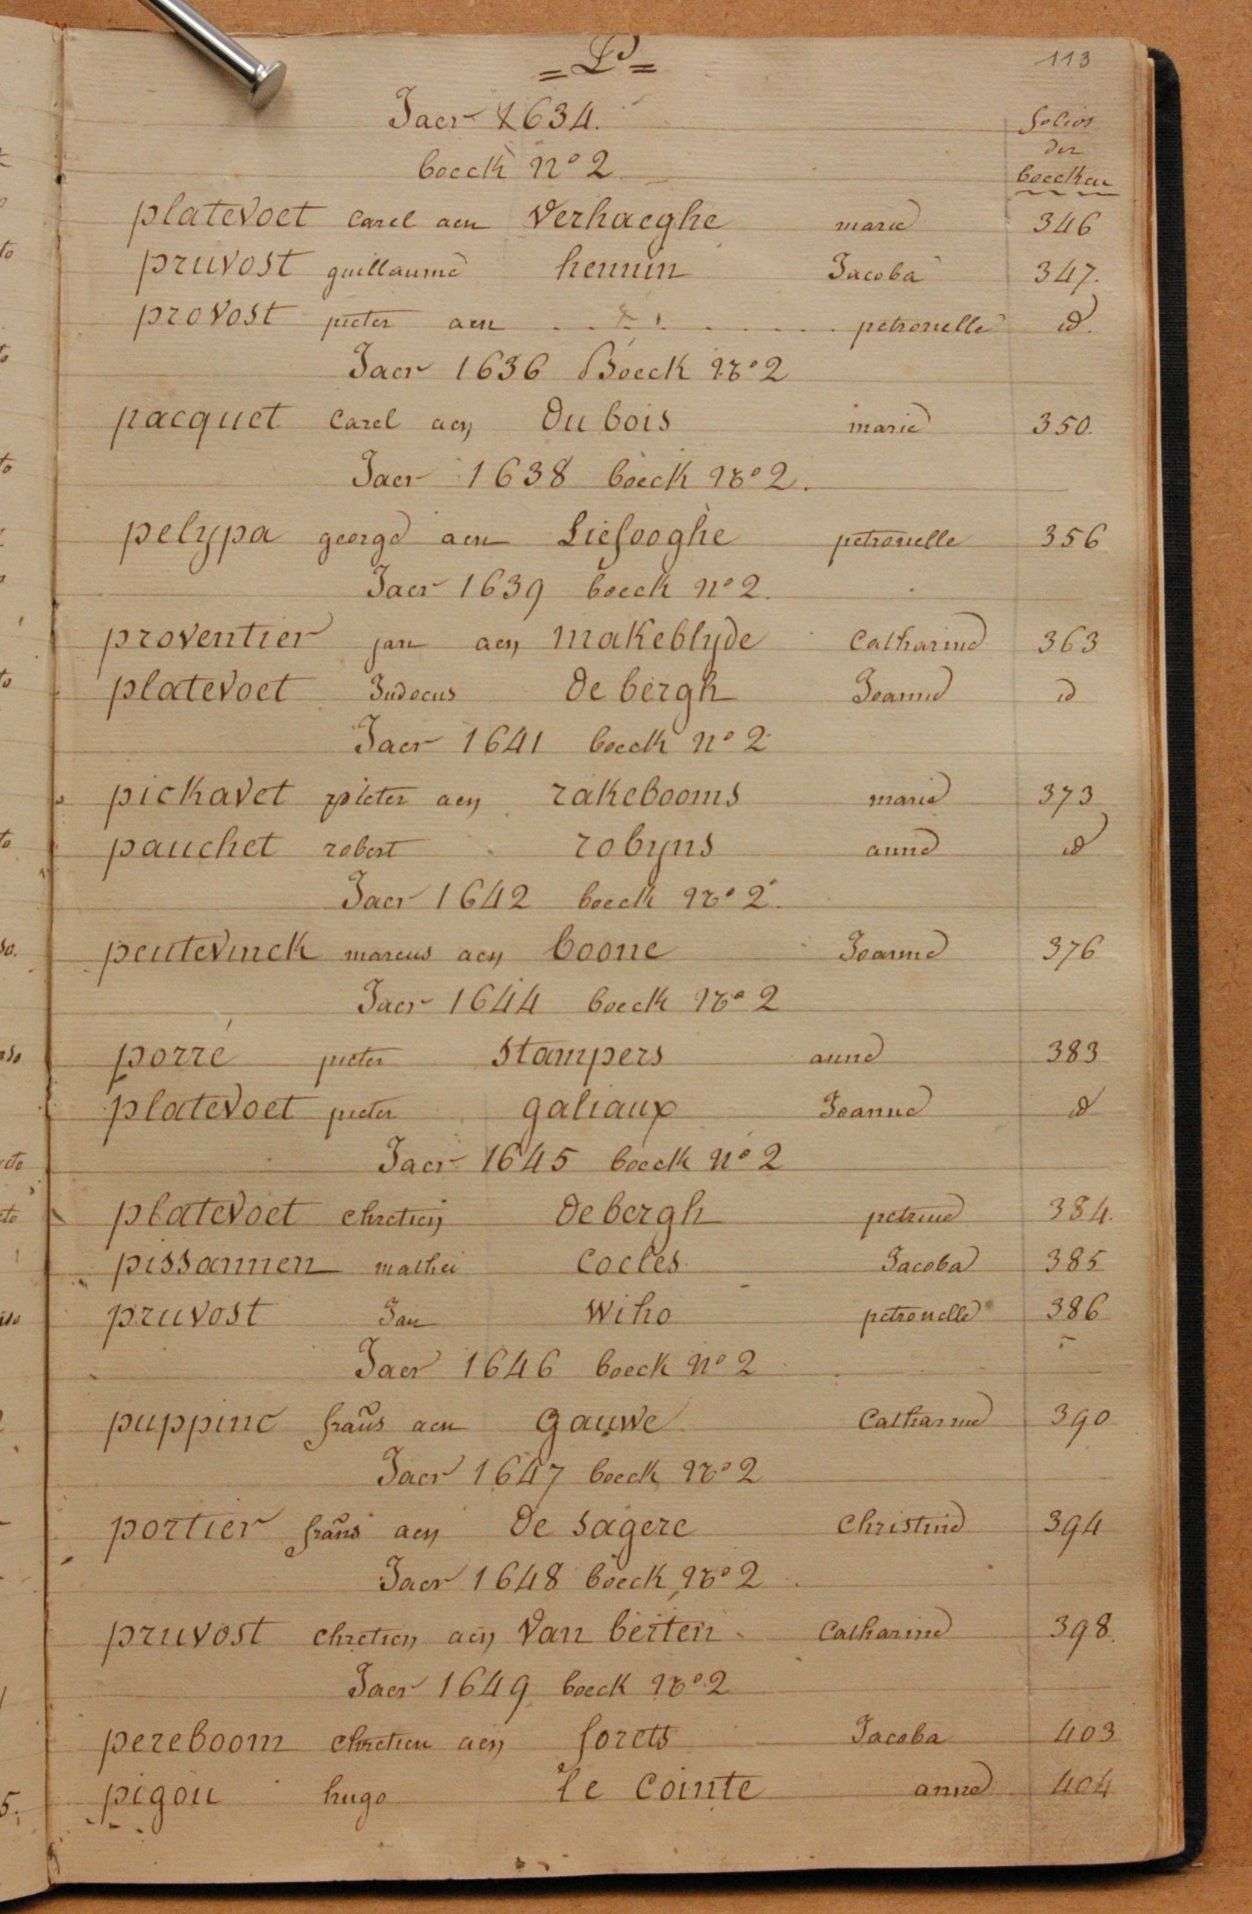 = P =
113
Jaer 1634.
boeck n° 2
folios
der
boecken
platevoet carel aen Verhaeghe marie 346
pruvost guillaume hennin Jacoba 347.
provost pieter aen . . . . . . . . . petronelle id.
Jaer 1636 Boeck n° 2
pacquet carel aen Du bois marie 350.
Jaer 1638 boeck n° 2.
pelypa george aen Liefooghe petronelle 356
Jaer 1639 boeck n° 2.
proventier jan aen makeblyde Catharine 363
platevoet Judocus De bergh Joanne id
Jaer 1641 boeck n° 2
pickavet pieter aen rakebooms marie 373
pauchet robert robyns anne id
Jaer 1642 boeck n° 2.
peutevinck marcus aen boone Joanne 376
Jaer 1644 boeck n° 2
porré pieter stampers anne 383
platevoet pieter galiaux Joanne id
Jaer 1645 boeck n° 2
platevoet chretien De bergh petrine 384.
pissannen mathei cocles Jacoba 385
pruvost Jan wiho petronelle 386
Jaer 1646 boeck n° 2
puppinc frans aen gauwe Catharine 390
Jaer 1647 boeck n° 2
portier frans aen De sagere Christine 394
Jaer 1648 boeck n° 2
pruvost chretien aen Van beiten Catharine 398.
Jaer 1649 boeck n° 2
pereboom chretien aen forets Jacoba 403
pigou hugo le cointe anne 404